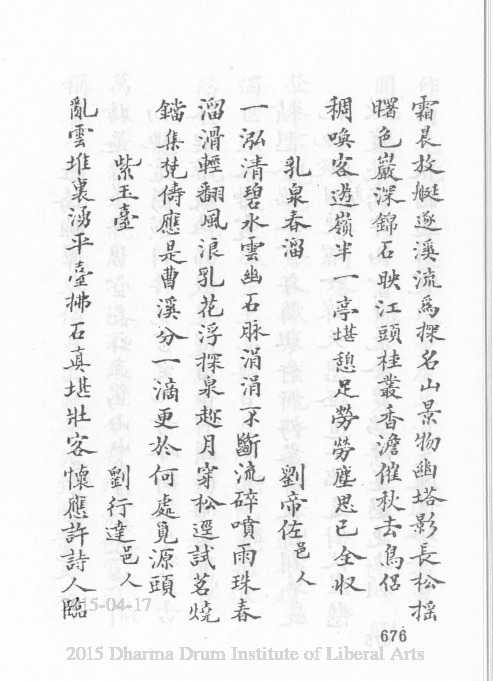 霜晨放艇逐溪流為探名山景物幽塔影長松搖
曙色巖深錦石映江頭桂叢香澹催秋去鳥侶
稠喚客遊嶺半一亭堪憩足勞勞塵思已全收
乳泉春溜 劉帝佐邑人
一泓清碧水雲幽石脉涓涓不斷流碎噴雨珠春
溜滑輕翻風浪乳花浮探泉趂月穿松逕試茗燒
鐺集梵儔應是曹溪分一滴更於何處覓源頭
紫玉臺 劉行達邑人
亂雲堆裏湧平臺拂石真堪壯客懷應許詩人臨
15-04-17
676
2015 Dharma Drum Institute of Liberal Arts